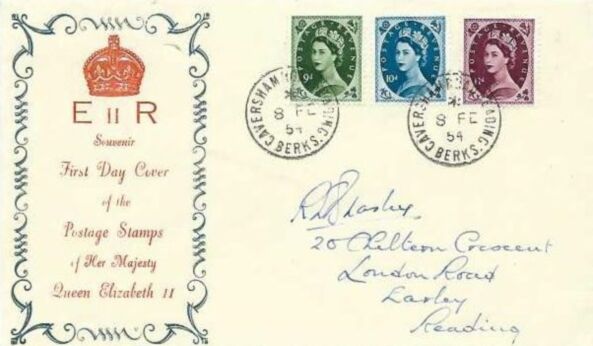 E II R
Souvenir
First Day Cover
of the
Postage Stamps
of Her Majesty
Queen Elizabeth II
POSTAGE REVENUE
9d
POSTAGE REVENUE
10d
POSTAGE REVENUE
CAVERSHAM READING
8 FE
54
BERKS.
CAVERSHAM READING
8 FE
54
BERKS.
20 Chiltern Crescent
London Road
Earley
Reading